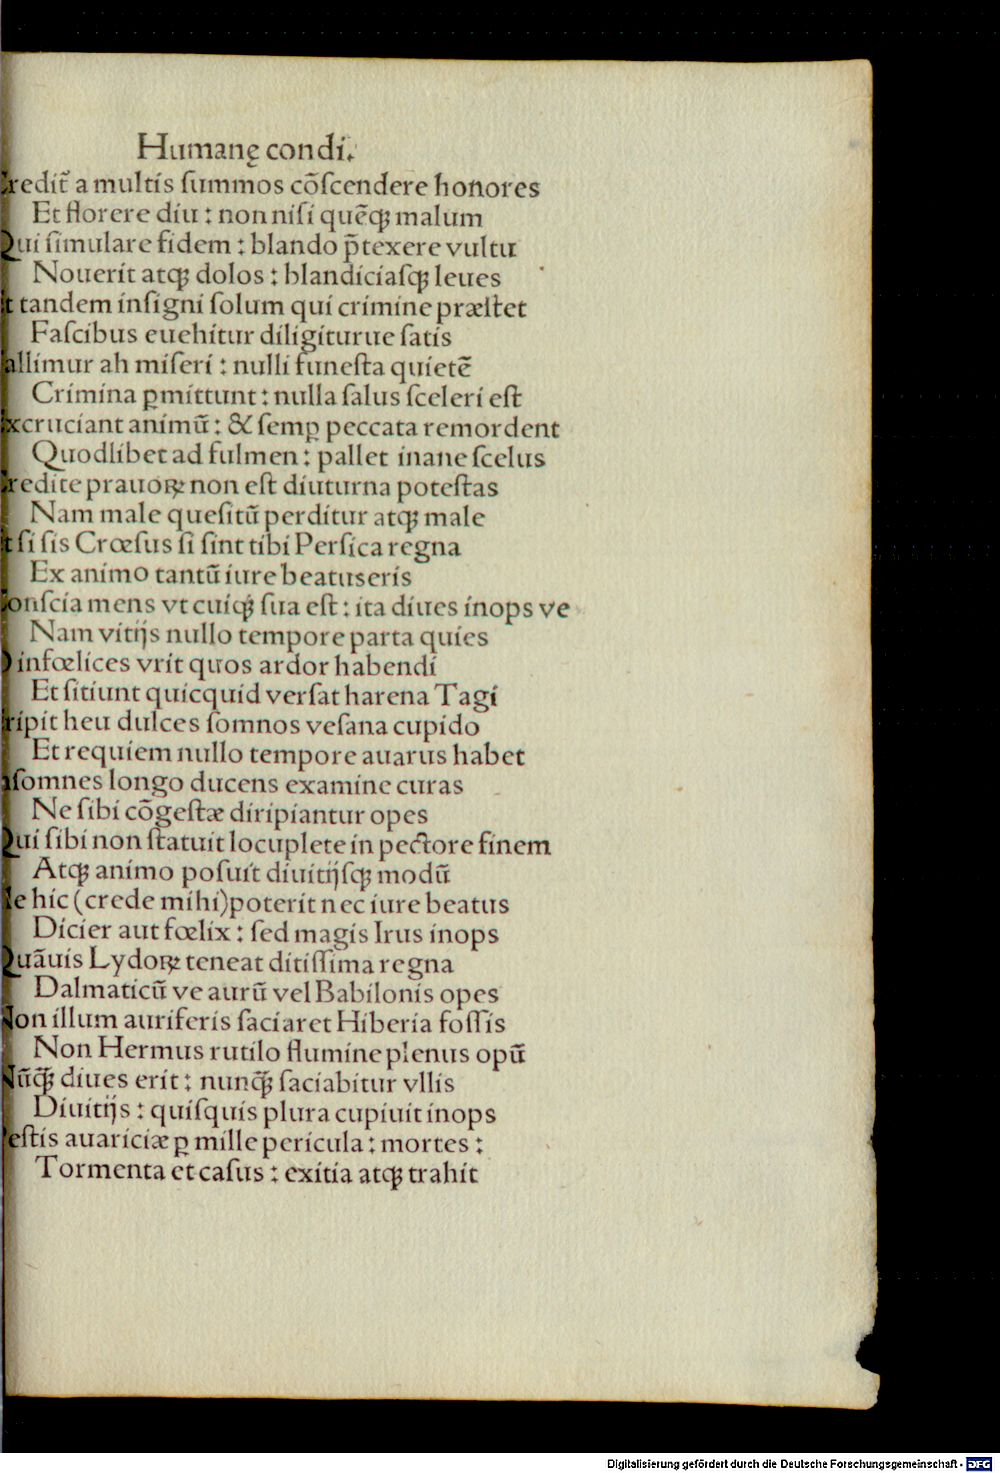 Humanę condi.
Credit̃ a multis ſummos cõſcendere honores
Et florere diu : non niſi quẽq; malum
Qui ſimulare fidem : blando p̃texere vultu
Nouerit atq; dolos : blandiciaſq; leues
Et tandem inſigni ſolum qui crimine præſtet
Faſcibus euehitur diligiturue ſatis
Fallimur ah miſeri : nulli funeſta quietẽ
Crimina ꝑmittunt : nulla ſalus ſceleri eſt
Excruciant animũ : & ſemꝑ peccata remordent
Quodlibet ad fulmen : pallet inane ſcelus
Credite prauoꝝ non eſt diuturna poteſtas
Nam male queſitũ perditur atq; male
Et ſi ſis Crœſus ſi ſint tibi Perſica regna
Ex animo tantũ iure beatus eris
Conſcia mens vt cuiq; ſua eſt : ita diues inops ve
Nam vitijs nullo tempore parta quies
O infœlices vrit quos ardor habendi
Et ſitiunt quicquid verſat harena Tagi
Eripit heu dulces ſomnos veſana cupido
Et requiem nullo tempore auarus habet
Inſomnes longo ducens examine curas
Ne ſibi cõgeſtæ diripiantur opes
Qui ſibi non ſtatuit locuplete in pectore finem
Atq; animo poſuit diuitijſq; modũ
Ne hic (crede mihi) poterit nec iure beatus
Dicier aut fœlix : ſed magis Irus inops
Quãuis Lydoꝝ teneat ditiſſima regna
Dalmaticũ ve aurũ vel Babilonis opes
Non illum auriferis ſaciaret Hiberia foſſis
Non Hermus rutilo flumine plenus opũ
Nũq̃; diues erit : nunq̃; ſaciabitur vllis
Diuitijs : quiſquis plura cupiuit inops
Peſtis auariciæ ꝑ mille pericula : mortes :
Tormenta et caſus : exitia atq; trahit
Digitalisierung gefördert durch die Deutsche Forschungsgemeinschaft - DFG